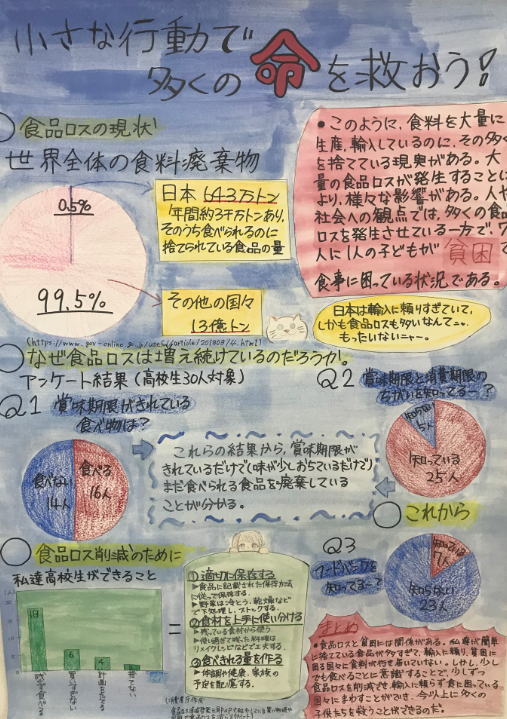 小さな行動で
多くの命を救おう!
○食品ロスの現状
世界全体の食料廃棄物
0.5%
99.5%
日本 643万トン
年間約3千万トンあり、
そのうち食べられるのに
捨てられている食品の量
その他の国々
13億トン
●このように、食料を大量に
生産、輸入しているのに、その多く
を捨てている現実がある。大
量の食品ロスが発生することに
より、様々な影響がある。人や
社会への観点では、多くの食品
ロスを発生させている一方で、7
人に1人の子どもが貧困で
食事に困っている状況である。
日本は輸入に頼りすぎていて、
しかも食品ロスも多いなんてニャ、
もったいないニャー。
○なぜ食品ロスは増え続けているのだろうか。
アンケート結果(高校生30人対象)
Q1 賞味期限がきれている
食べ物は?
食べない
14人
食べる
16人
Q2 賞味期限と消費期限の
ちがいを知ってる〜?
5人
知っている
25人
これらの結果から、賞味期限が
きれているだけで(味が少しおちているだけで)
まだ食べられる食品を廃棄している
ことが分かる。
○これから
○食品ロス削減のために
私達高校生ができること
18
6
4
=
①適切に保存する
▶食品に記載された保存方法
に従って保存する。
▶野菜は冷とう、乾燥など
で下処理し、ストックする。
②食材を上手に使い分ける
▶残っている食材から使う
③食べきれる量を作る
▶体調や健康、家族の
予定を配慮する。
Q3
フードバンクを
知ってる〜?
7人
知らない
23人
まとめ
●食品ロスと貧困には関係がある。私達が簡単
に捨てている食品が多すぎて、輸入に頼り、貧困に
困る国々に食料が行き届いていない。しかし、少し
でも食べることに意識することで、少しずつ
食品ロスを削減でき、輸入に頼らず貧に困っている
国々にまわすことができ、今以上に多くの
子供たちを救うことができるのだ。